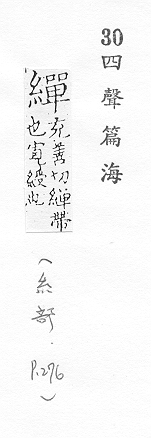 30四聲篇海
繟 充善切繟帶
也寬綬也
（糸部．P.276）